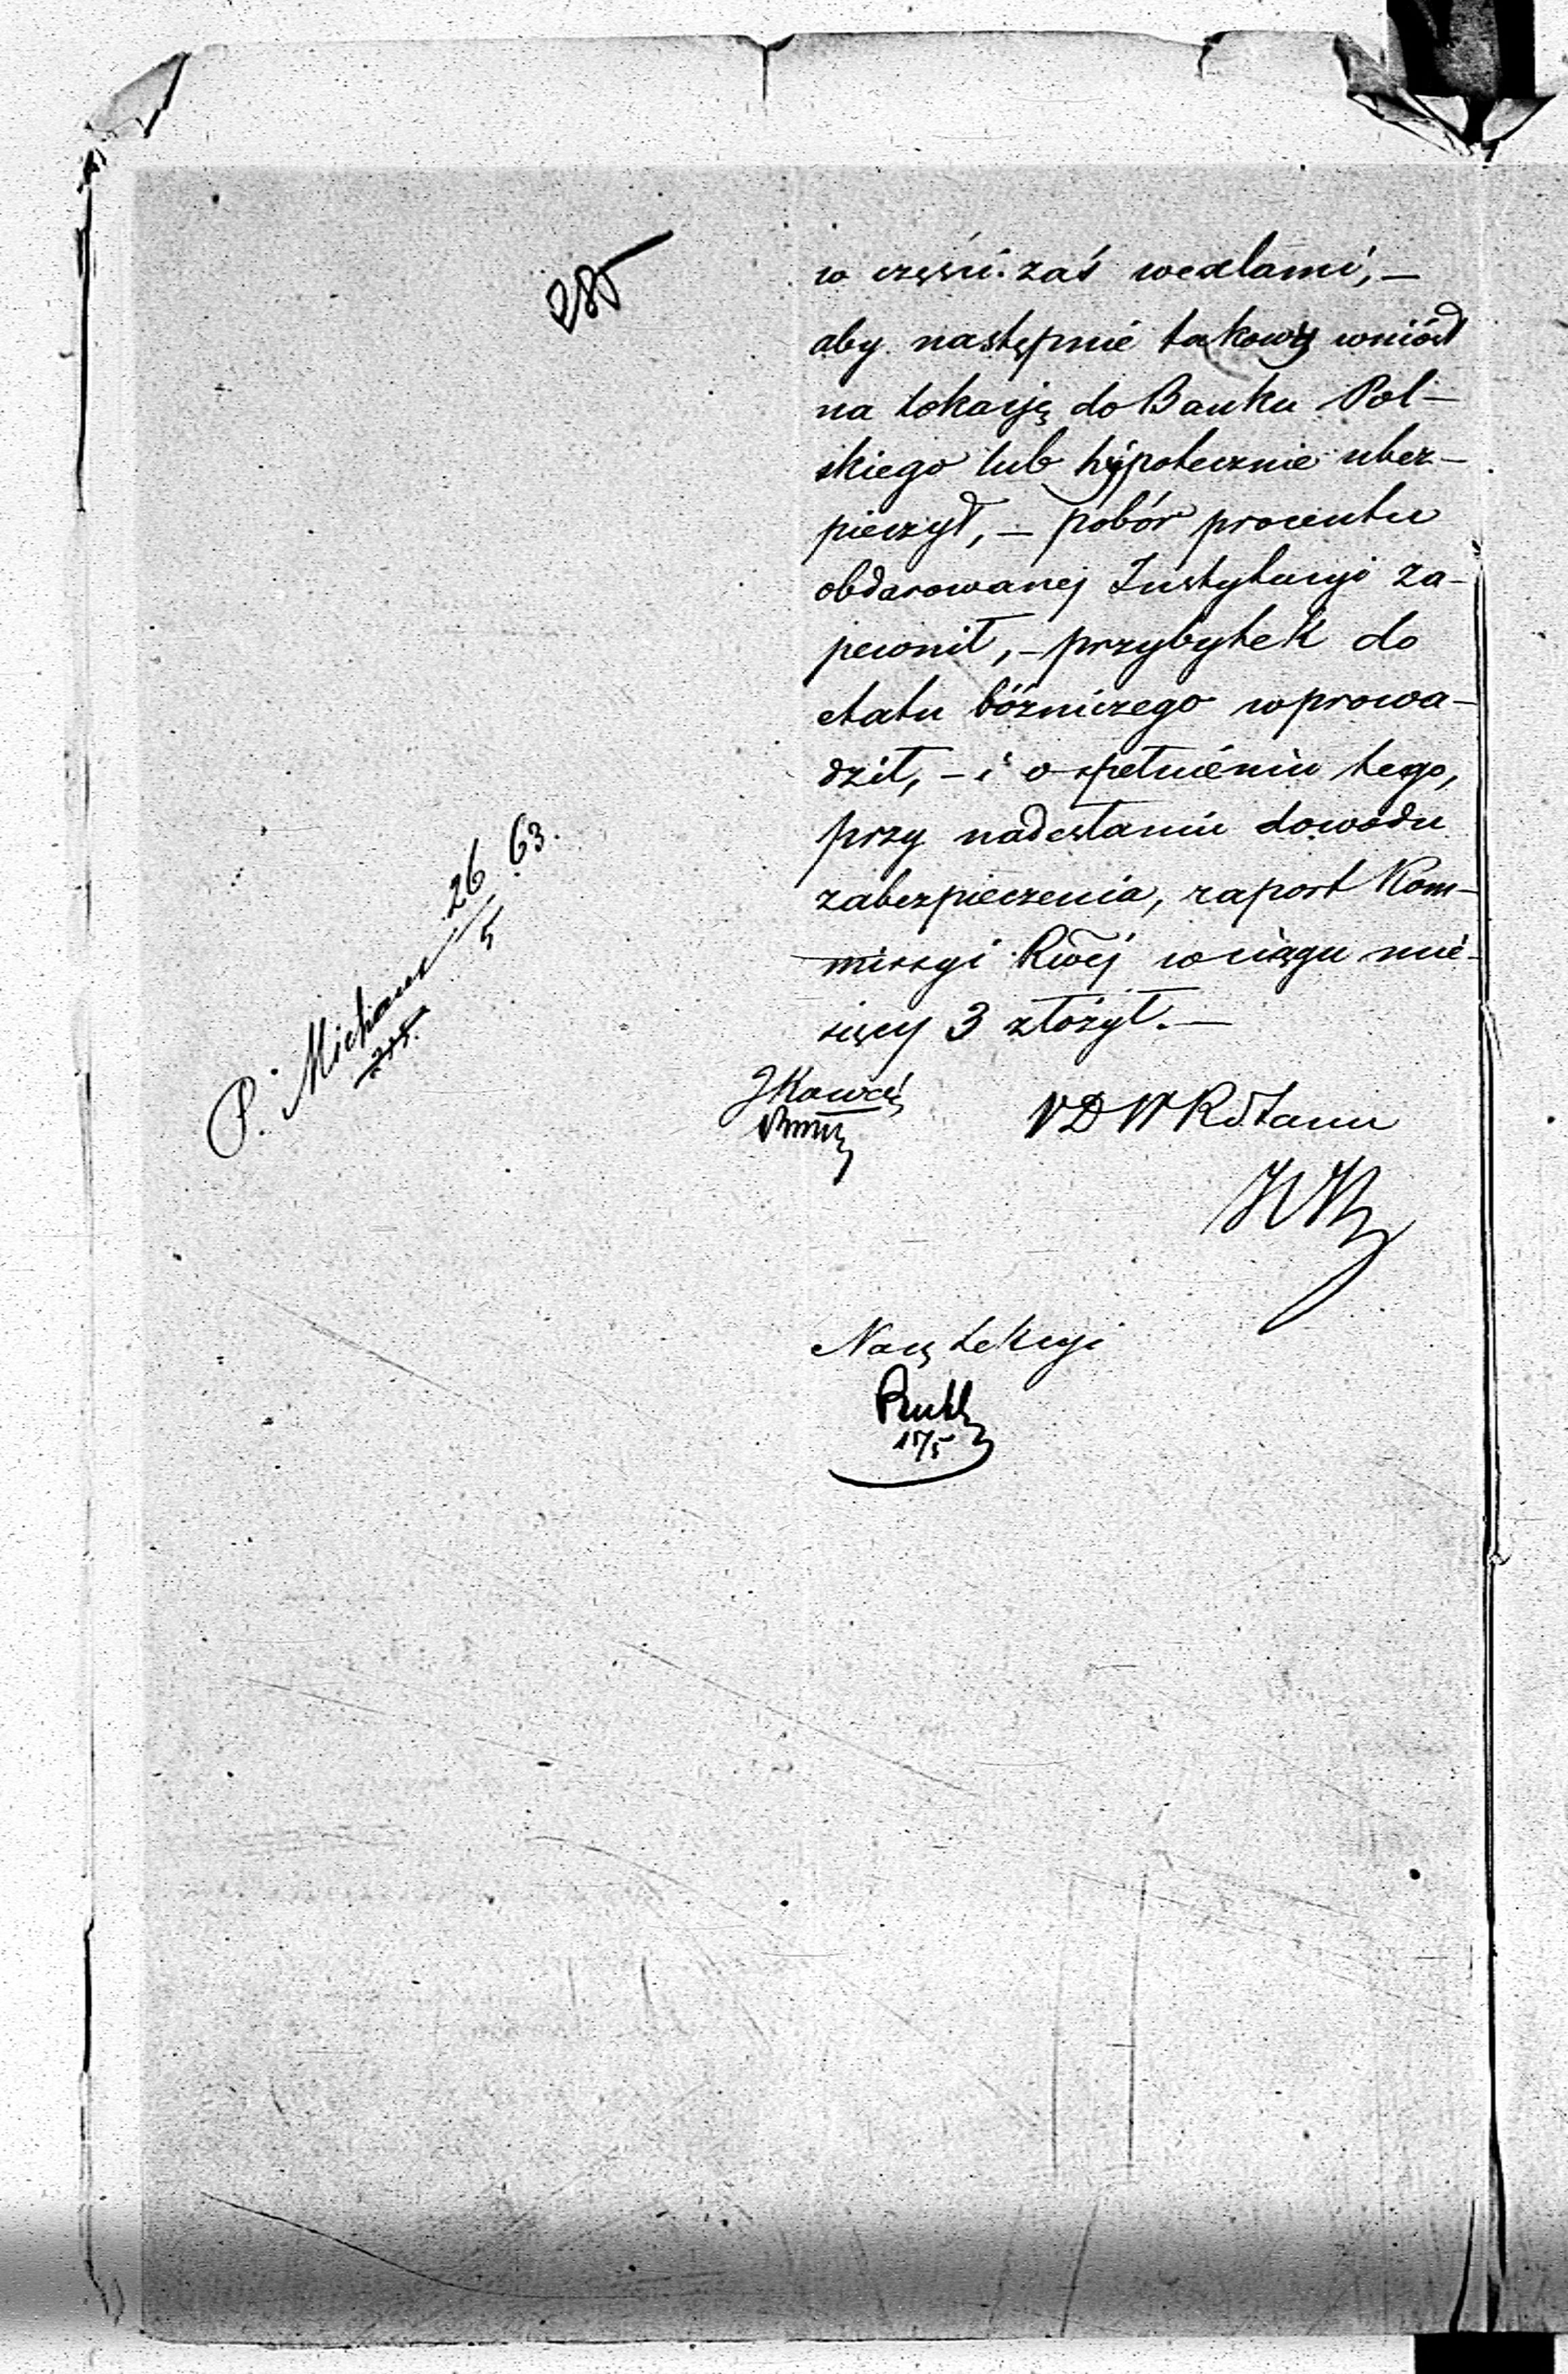 285
w części zaś wexlami, —
aby następnie takowy wniósł
na lokacyję do Banku Pol-
skiego lub hÿpotecznie ubez-
pieczył, — pobór procentu
obdarowanej Instytucyi za-
pewnił, — przybytek do
etatu bóżniczego wprowa-
dził, — i o spełnieniu tego,
przy nadesłaniu dowodu
zabezpieczenia, raport Kom-
missyi Rwéj w ciągu mie-
sięcy 3 złożył. —
P. Michaux 26/5 63.
VDWR Stanu
Nacz Sekcyi
15/5